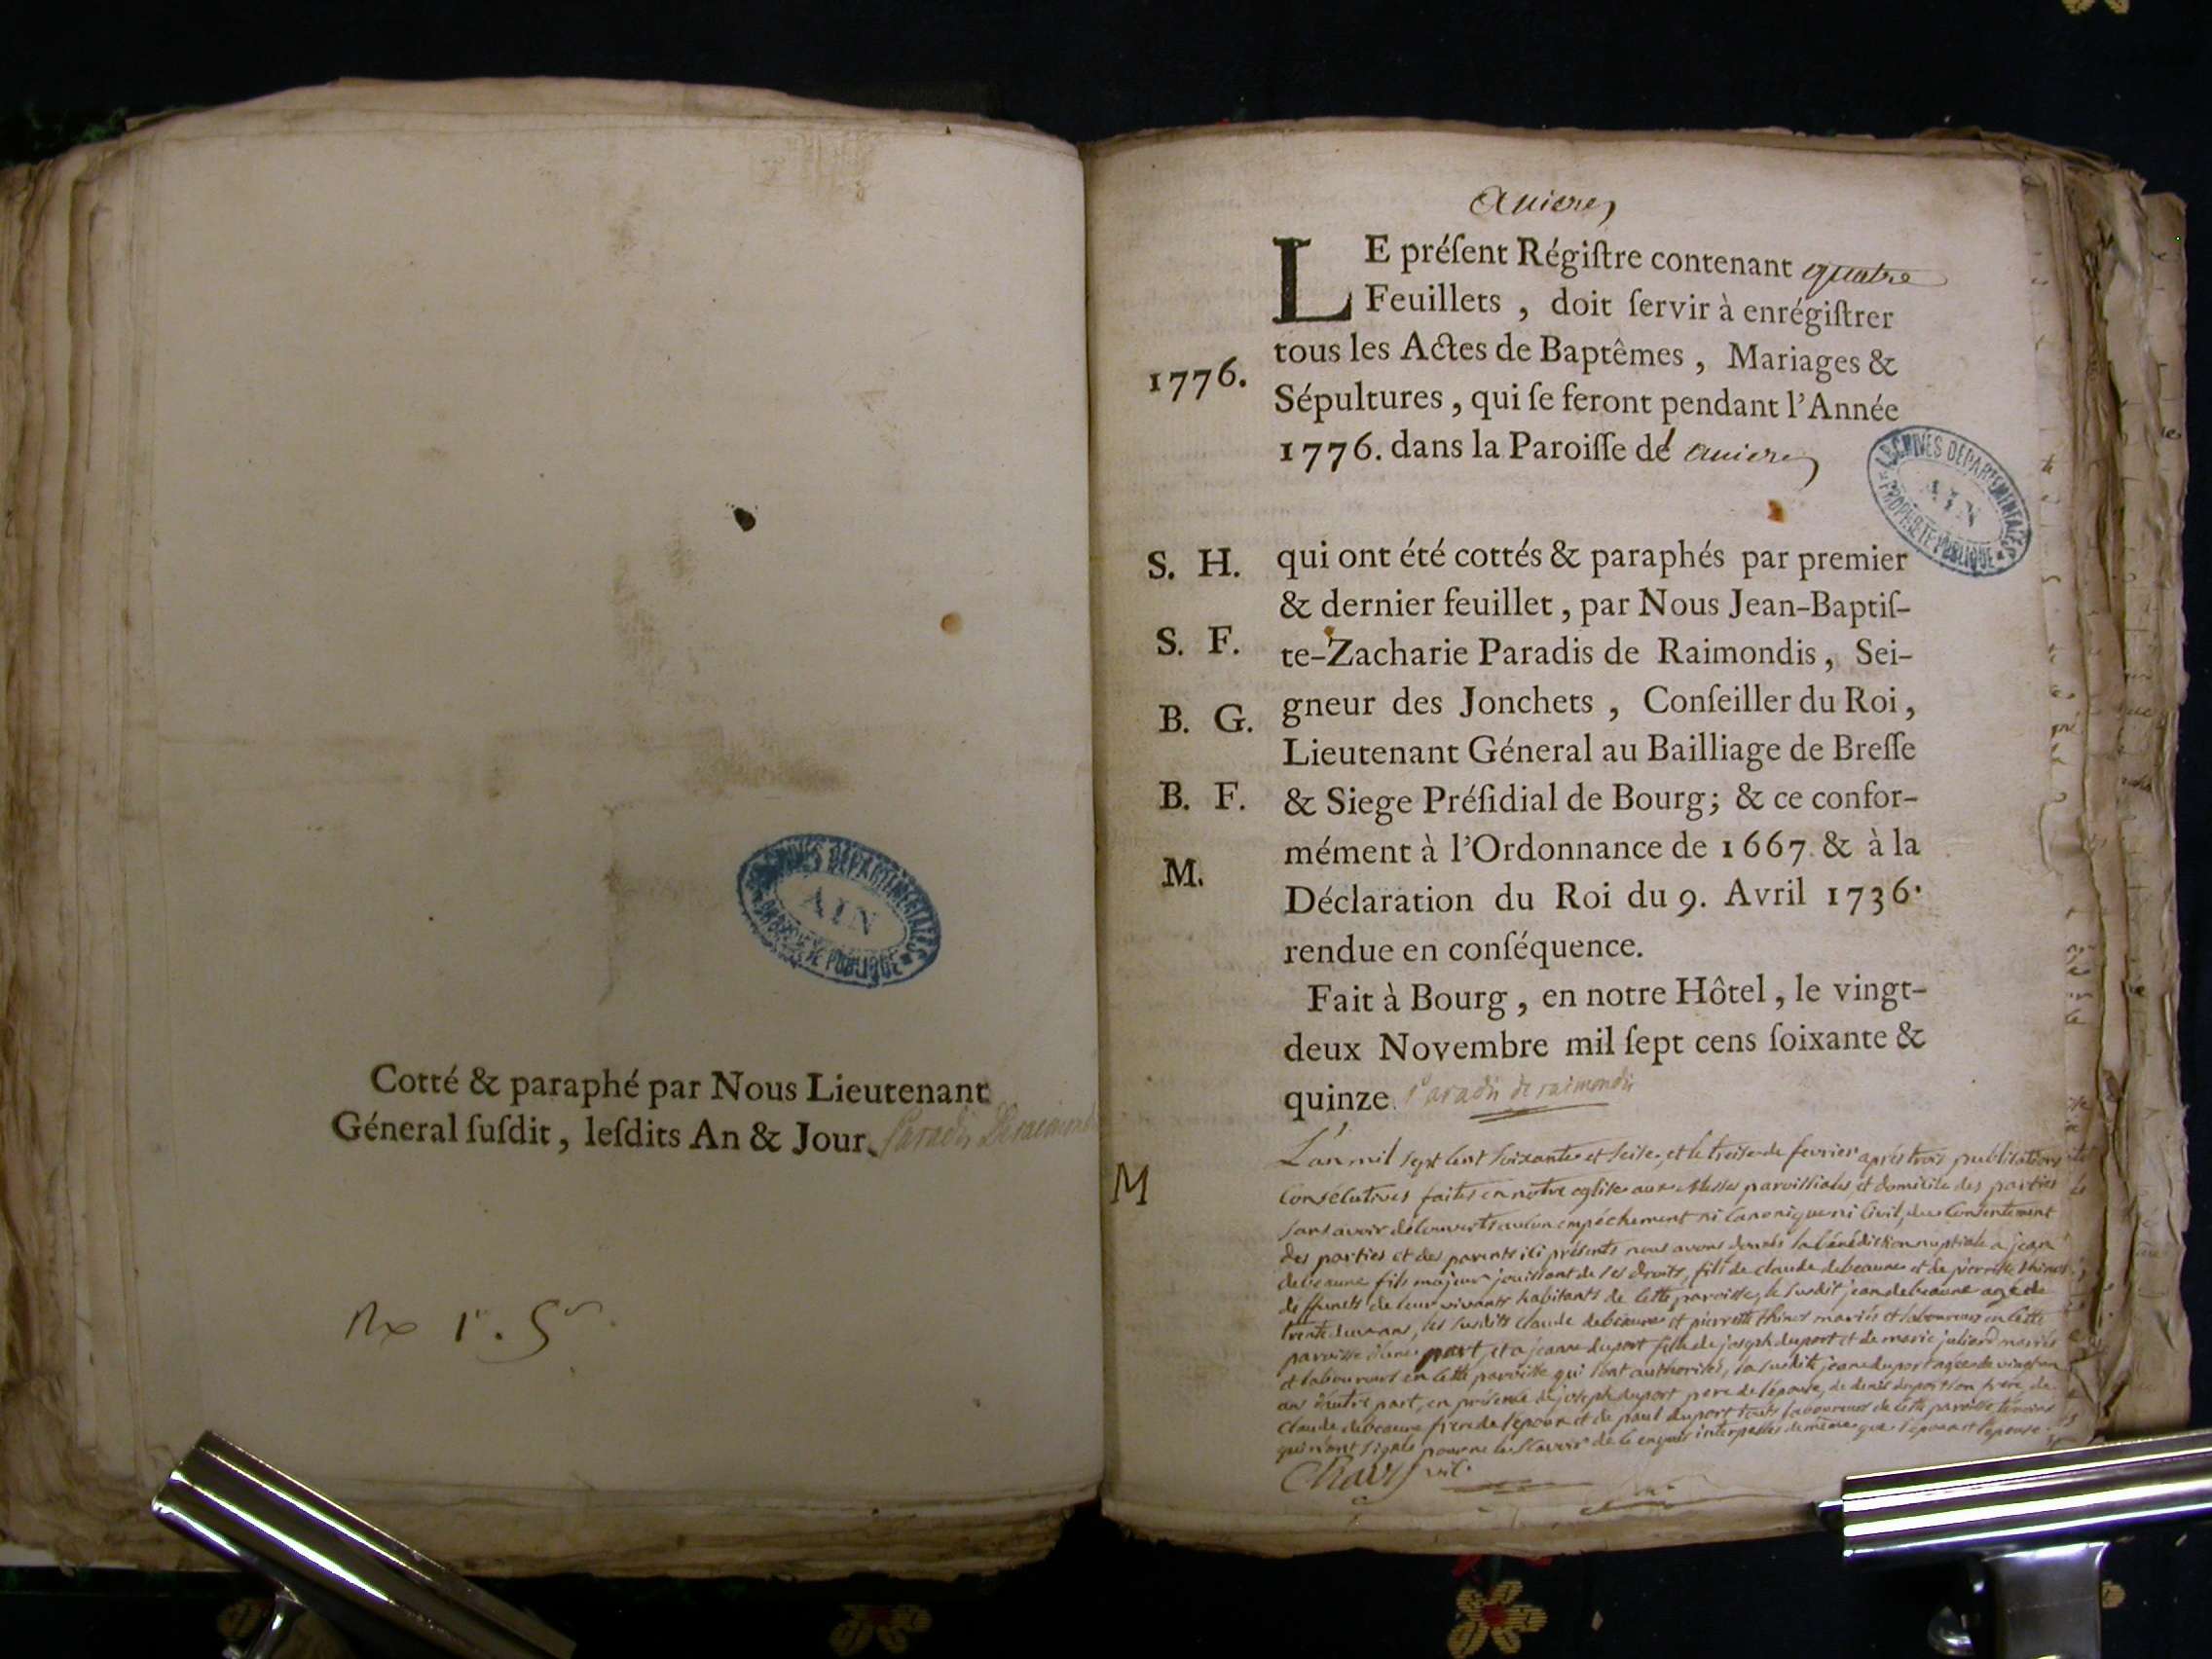 Cotté & paraphé par Nous Lieutenant
Géneral ſuſdit, leſdits An & Jour.
ARCHIVES DÉPARTEMENTALES
AIN
PROPRIÉTÉ PUBLIQUE
LE préſent Régiſtre contenant quatre
Feuillets, doit ſervir à enrégiſtrer
tous les Actes de Baptêmes, Mariages &
1776.
Sépultures, qui ſe feront pendant l'Année
1776. dans la Paroiſſe de
ARCHIVES DÉPARTEMENTALES
AIN
PROPRIÉTÉ PUBLIQUE
S. H.
qui ont été cottés & paraphés par premier
& dernier feuillet, par Nous Jean-Baptiſ-
S. F.
te-Zacharie Paradis de Raimondis, Sei-
gneur des Jonchets, Conſeiller du Roi,
B. G.
Lieutenant Géneral au Bailliage de Breſſe
B. F.
& Siege Préſidial de Bourg; & ce confor-
mément à l'Ordonnance de 1667. & à la
M.
Déclaration du Roi du 9. Avril 1736.
rendue en conſéquence.
Fait à Bourg, en notre Hôtel, le vingt-
deux Novembre mil ſept cens ſoixante &
quinze. Paradis de raimondis
M
L'an mil sept cent soixante et seise, et le treise de fevrier après trois publications
Consécutives faites en notre eglise aux Messes paroissiales, et domicile des parties
sans avoir découvert aucun empéchement ni Canonique ni Civil, du Consentement
des parties et des parents ici présents nous avons donnés la bénédiction nuptiale a jean
debeaune fils majeur jouissant de ses droits, fils de claude debeaune et de pierrette
deffunts de leur vivants habitants de cette paroisse, le susdit jean debeaune agé de
trente deux ans, les susdits claude debeaune et pierrette mariés et laboureurs en cette
paroisse d'une part, et a jeanne duport fille de joseph duport et de marie juliard mariés
et laboureurs en cette paroisse qui l'ont authorisée, la susdite jeane duport agée de vingt un
an d'autre part, en présence de joseph duport pere de l'épouse, de denis duport son frere, de
claude debeaune frere de l'époux et de paul duport touts laboureurs de cette paroisse témoins
qui n'ont signés pour ne le scavoir de ce enquis interpellés de même que l'époux et l'épouse